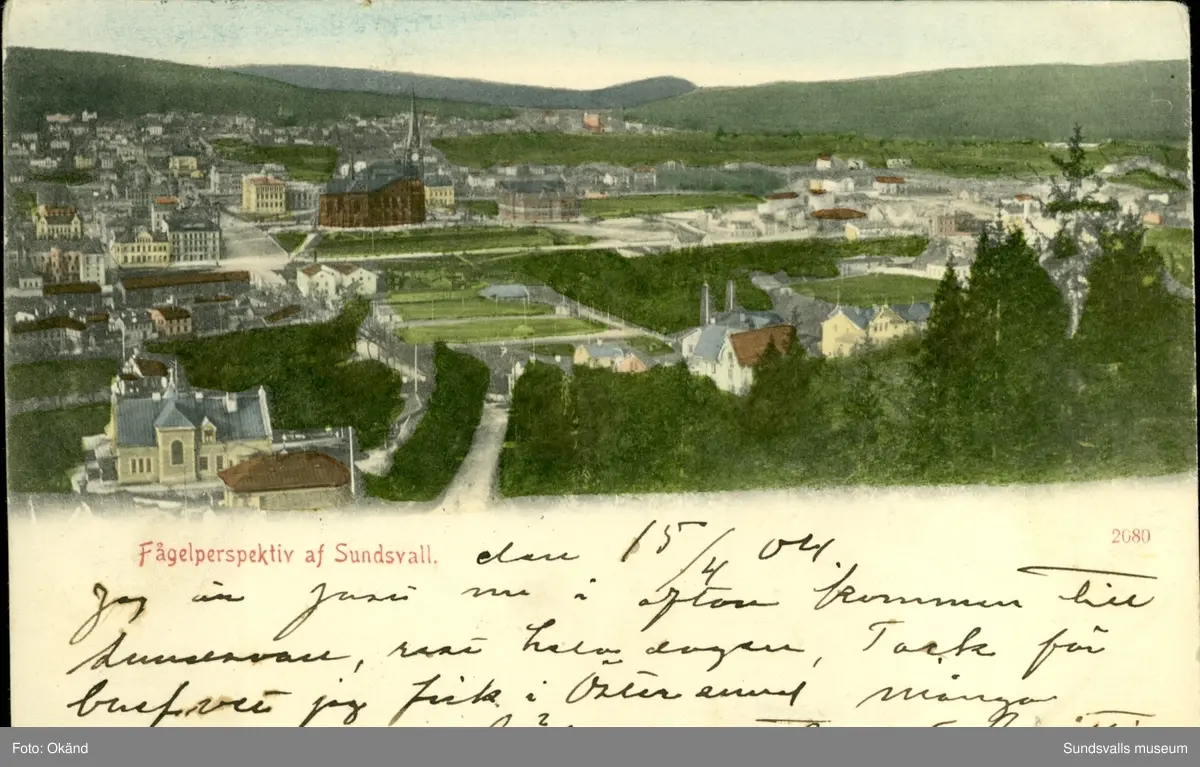 Fågelperspektiv af Sundsvall. den 15/4 04
2680
Jag är just nu i afton kommen till
Sundsvall, rest hela dagen, Tack för
brefvet jag fick i Östersund många
Foto: Okänd
Sundsvalls museum